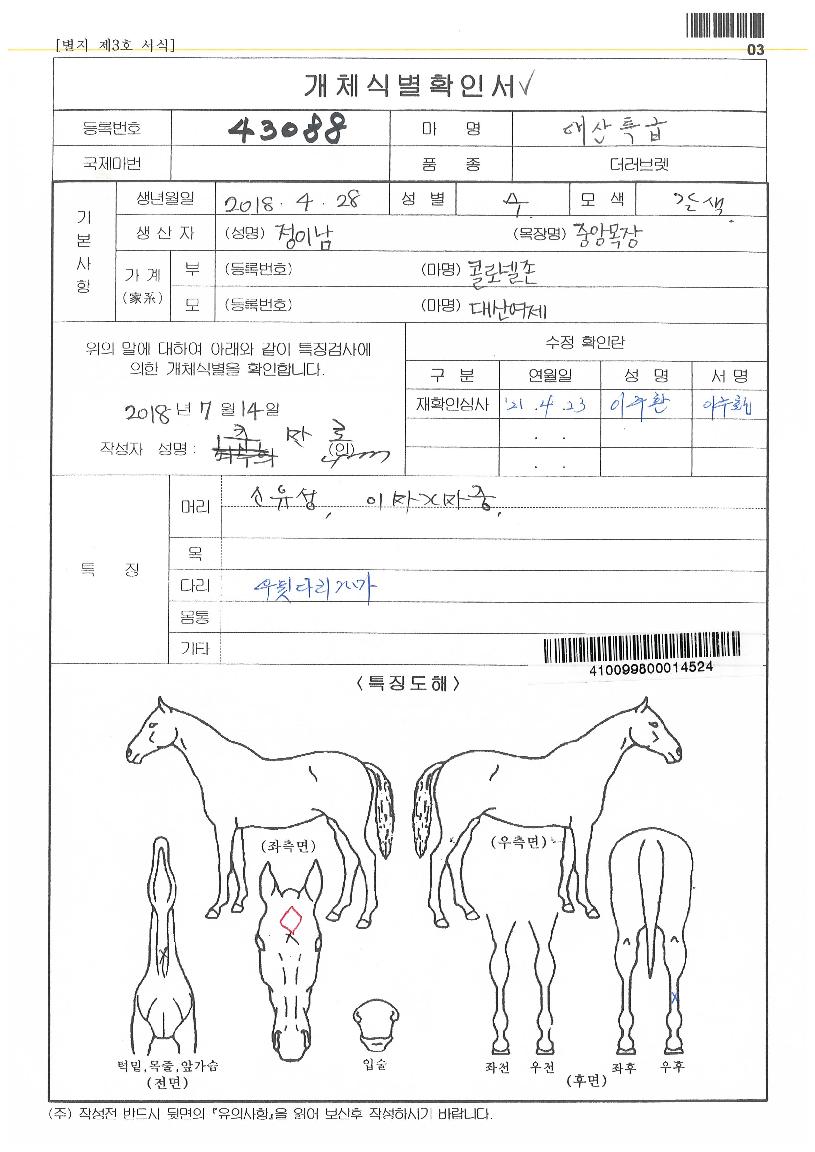 [별지 제3호 서식]
03
개체식별확인서✓
등록번호 43088 마 명 대산특급
국제마번 품 종 더러브렛
기본사항
생년월일 2018. 4. 28 성 별 수 모 색 갈색.
생 산 자 (성명) 정이남 (목장명) 중앙목장
가 계 (家系)
부 (등록번호) (마명) 콜로넬존
모 (등록번호) (마명) 대산어제
위의 말에 대하여 아래와 같이 특징검사에
의한 개체식별을 확인합니다.
2018년 7월 14일
작성자 성명 : (인)
수정 확인란
구 분 연월일 성 명 서 명
재확인심사 '21 .4 .23 이주환
. .
. .
특 징
머리 소유성, 이마X마중.
목
다리 우뒷다리
몸통
기타
410099800014524
<특징도해>
(좌측면) (우측면)
턱밑,목줄,앞가슴
(전면)
입술
좌전 우전 좌후 우후
(후면)
(주) 작성전 반드시 뒷면의 『유의사항』을 읽어 보신후 작성하시기 바랍니다.